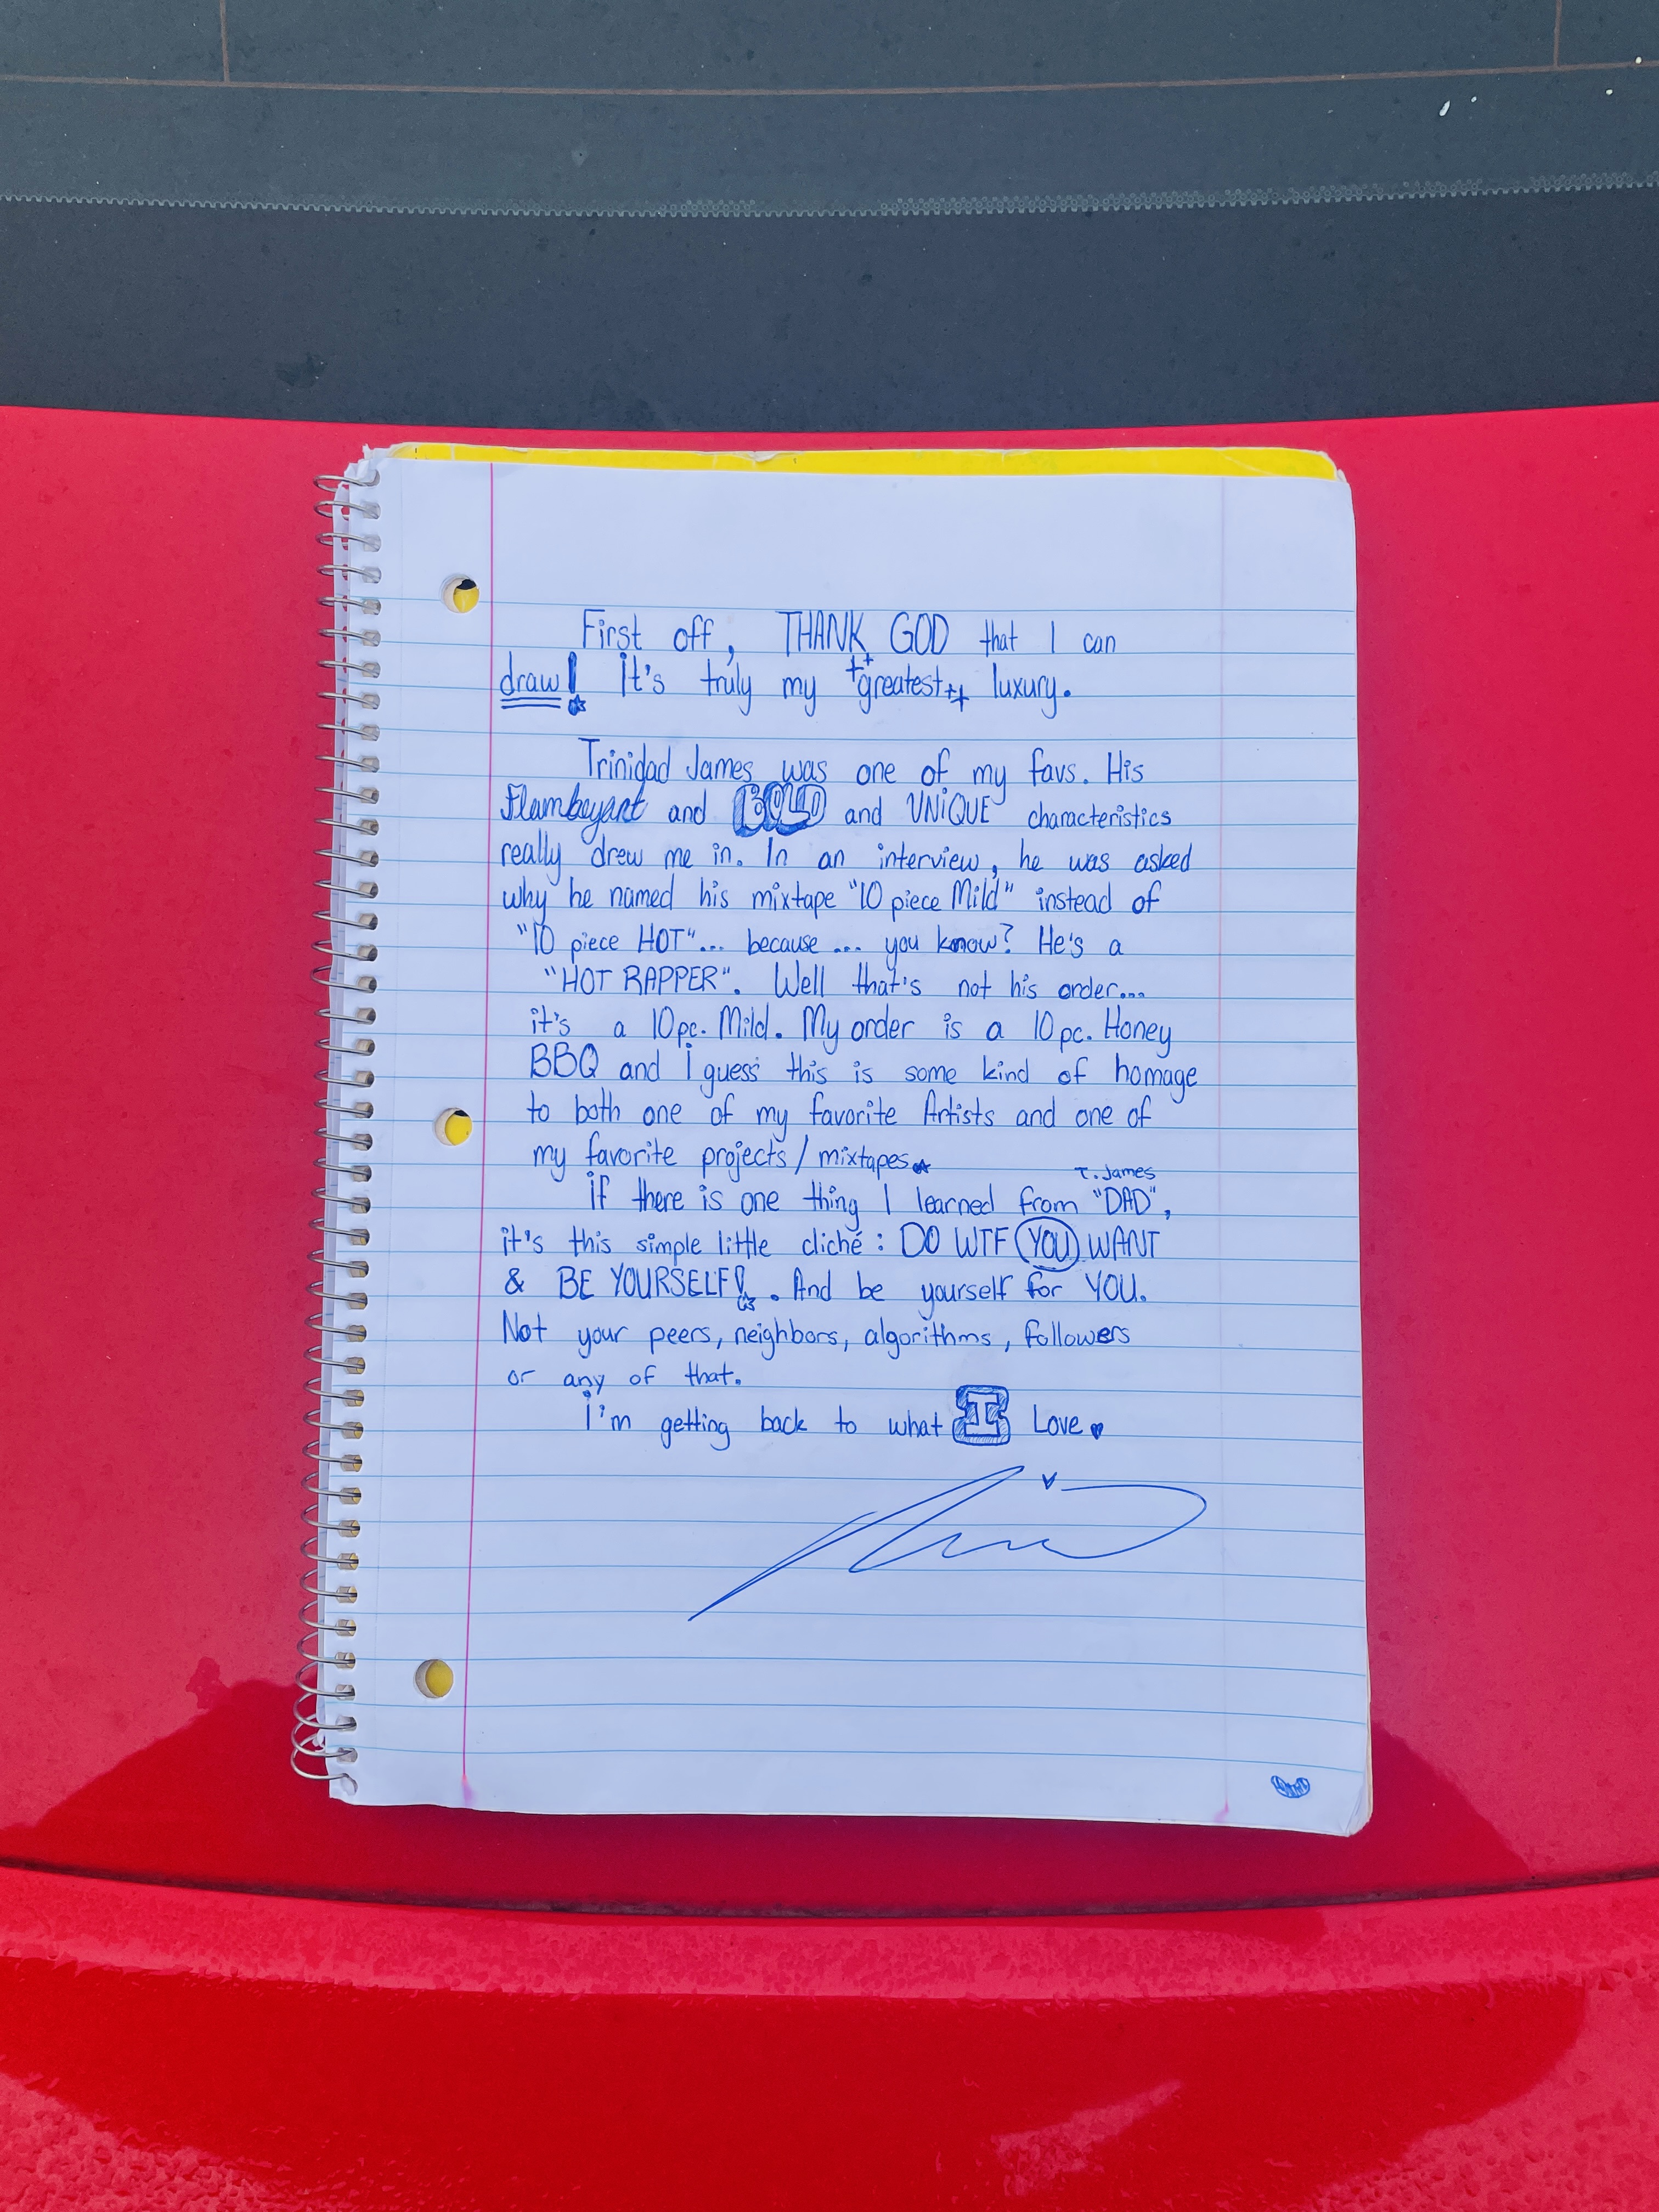 First off, THANK GOD that I can
draw! It's truly my greatest luxury.
Trinidad James was one of my favs. His
Flamboyant and BOLD and UNiQUE characteristics
really drew me in. In an interview, he was asked
why he named his mixtape "10 piece Mild" instead of
"10 piece HOT"... because ... you know? He's a
"HOT RAPPER". Well that's not his order...
it's a 10pc. Mild. My order is a 10pc. Honey
BBQ and i guess this is some kind of homage
to both one of my favorite Artists and one of
my favorite projects/mixtapes
T. James
if there is one thing I learned from "DAD",
it's this simple little cliché: DO WTF YOU WANT
& BE YOURSELF!. And be yourself for YOU.
Not your peers, neighbors, algorithms, followers
or any of that.
i'm getting back to what I Love